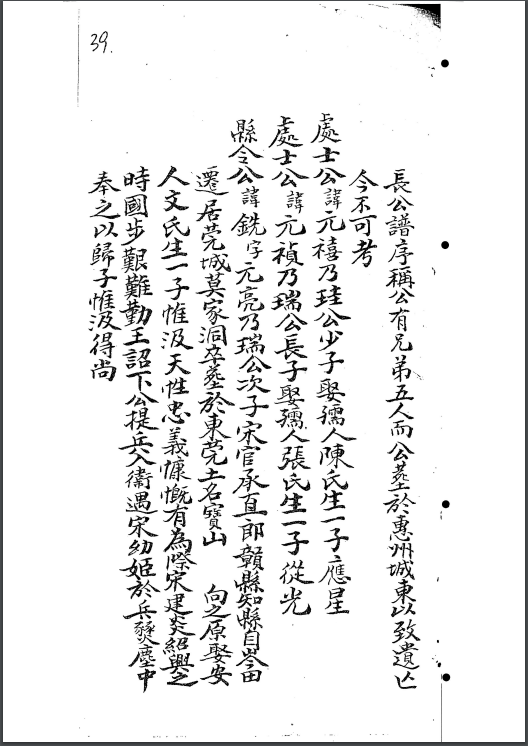 39.
長公譜序稱公有兄弟五人而公塟於惠州城東以致遺亡
今不可考
處士公諱元禧乃珪公少子娶孺人陳氏生一子應星
處士公諱元禎乃瑞公長子娶孺人張氏生一子從光
縣令公諱銑字元亮乃瑞公次子宋官承直郎贛縣知縣自岑田
遷居莞城莫家洞卒塟於東莞土名寶山 向之原娶安
人文氏生一子惟汲天性忠義慷慨有為際宋建炎紹興之
時國步艱難勤王詔下公提兵入衛遇宋幼姬於兵燹塵中
奉之以歸子惟汲得尚